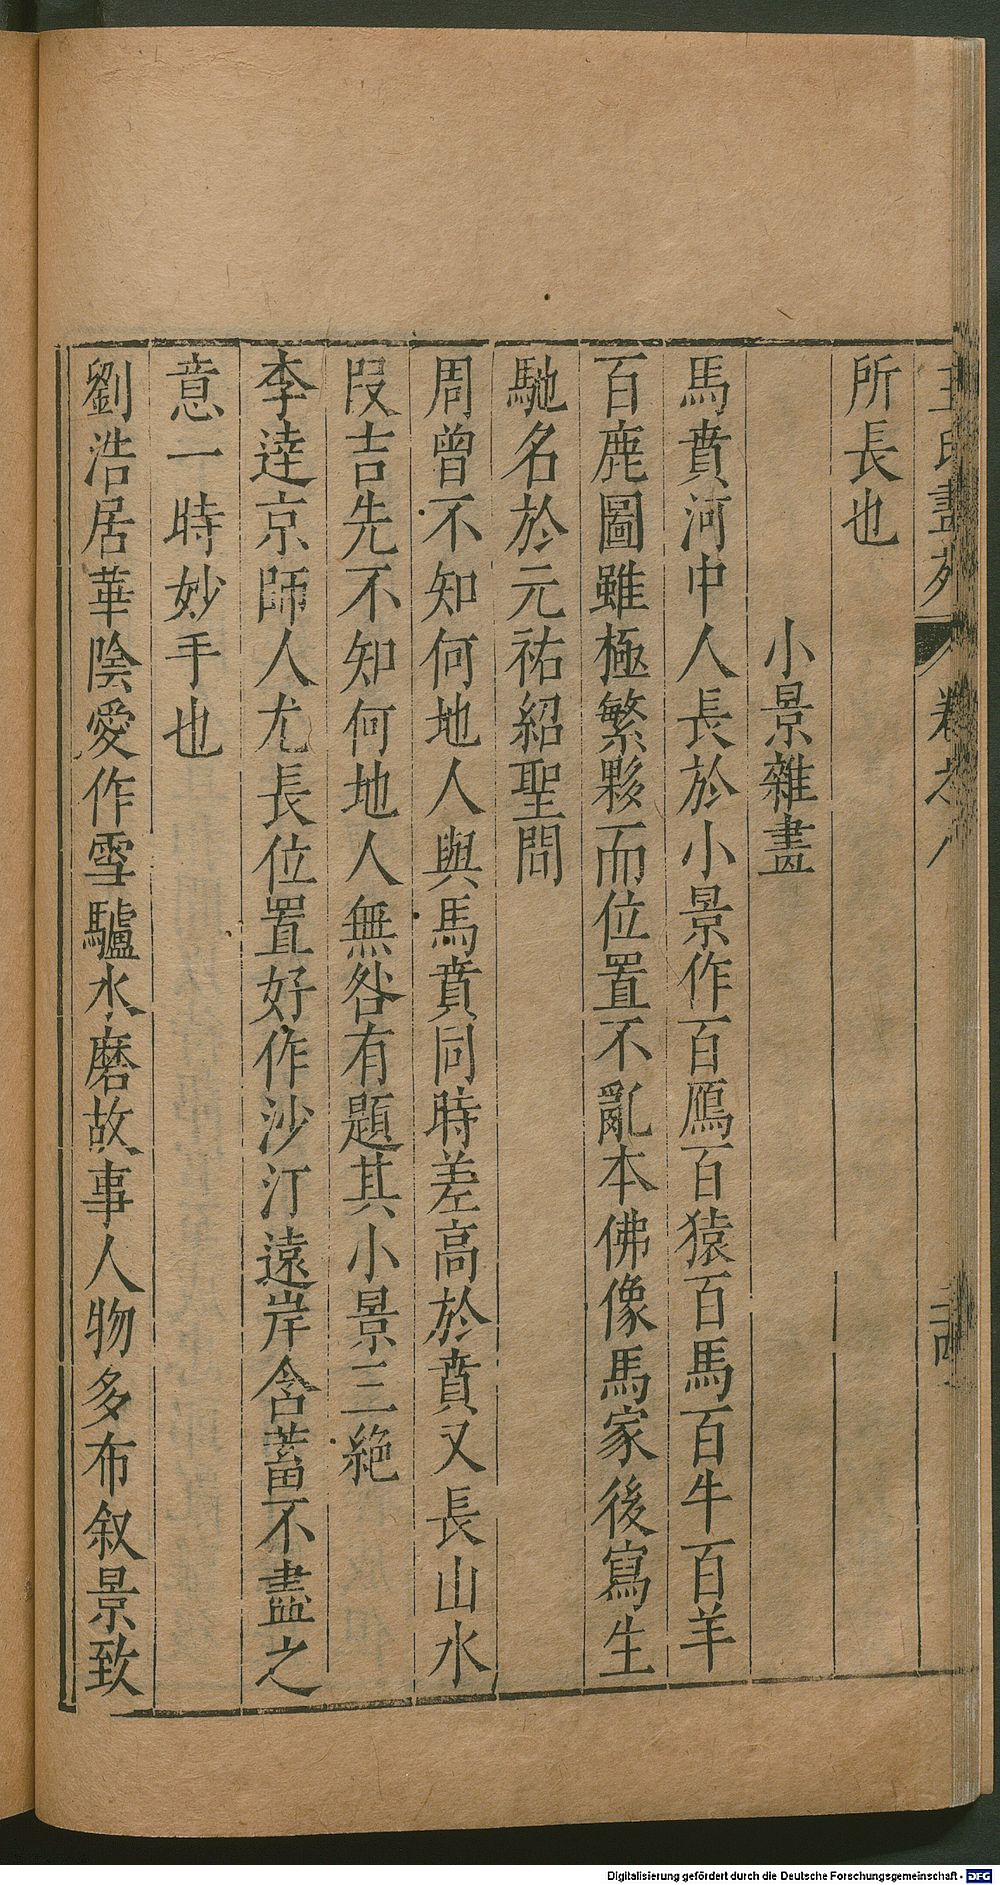 王氏畫苑 卷之八
所長也
小景雜畫
馬賁河中人長於小景作百鴈百猿百馬百牛百羊
百鹿圖雖極繁夥而位置不亂本佛像馬家後寫生
馳名於元祐紹聖問
周曾不知何地人與馬賁同時差高於賁又長山水
段吉先不知何地人無咎有題其小景三絶
李逹京師人尤長位置好作沙汀遠岸含蓄不盡之
意一時妙手也
劉浩居華隂愛作雪驢水磨故事人物多布叙景致
Digitalisierung gefördert durch die Deutsche Forschungsgemeinschaft - DFG